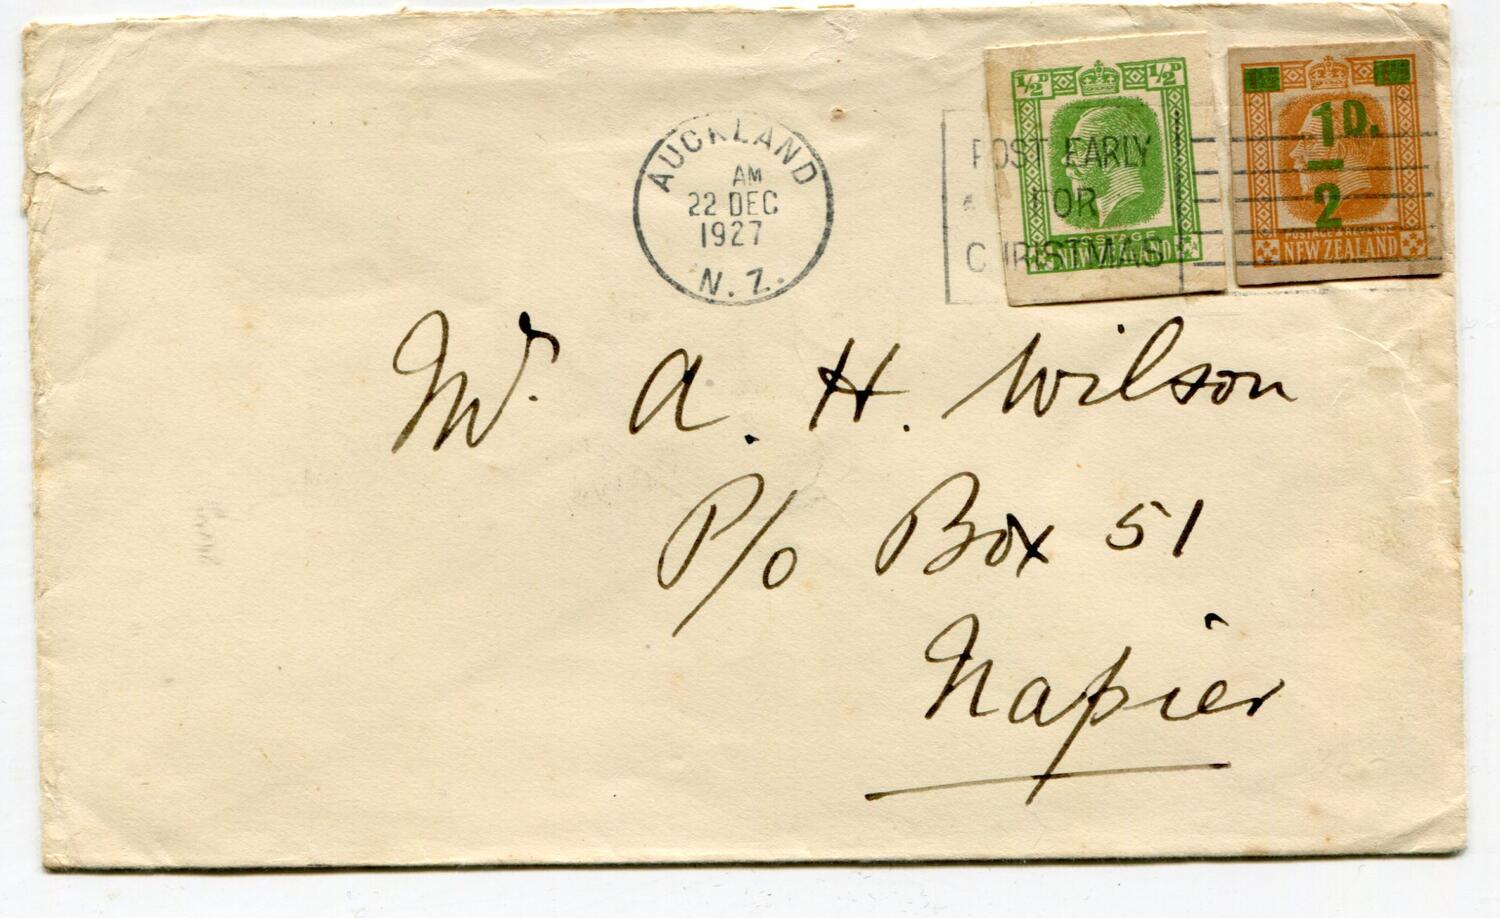 AUCKLAND
AM
22 DEC
1927
N. Z.
POST EARLY
FOR
CHRISTMAS
½D ½D
POSTAGE
NEW ZEALAND
1D.
2
NEW ZEALAND
Mr. A. H. Wilson
P/o Box 51
Napier